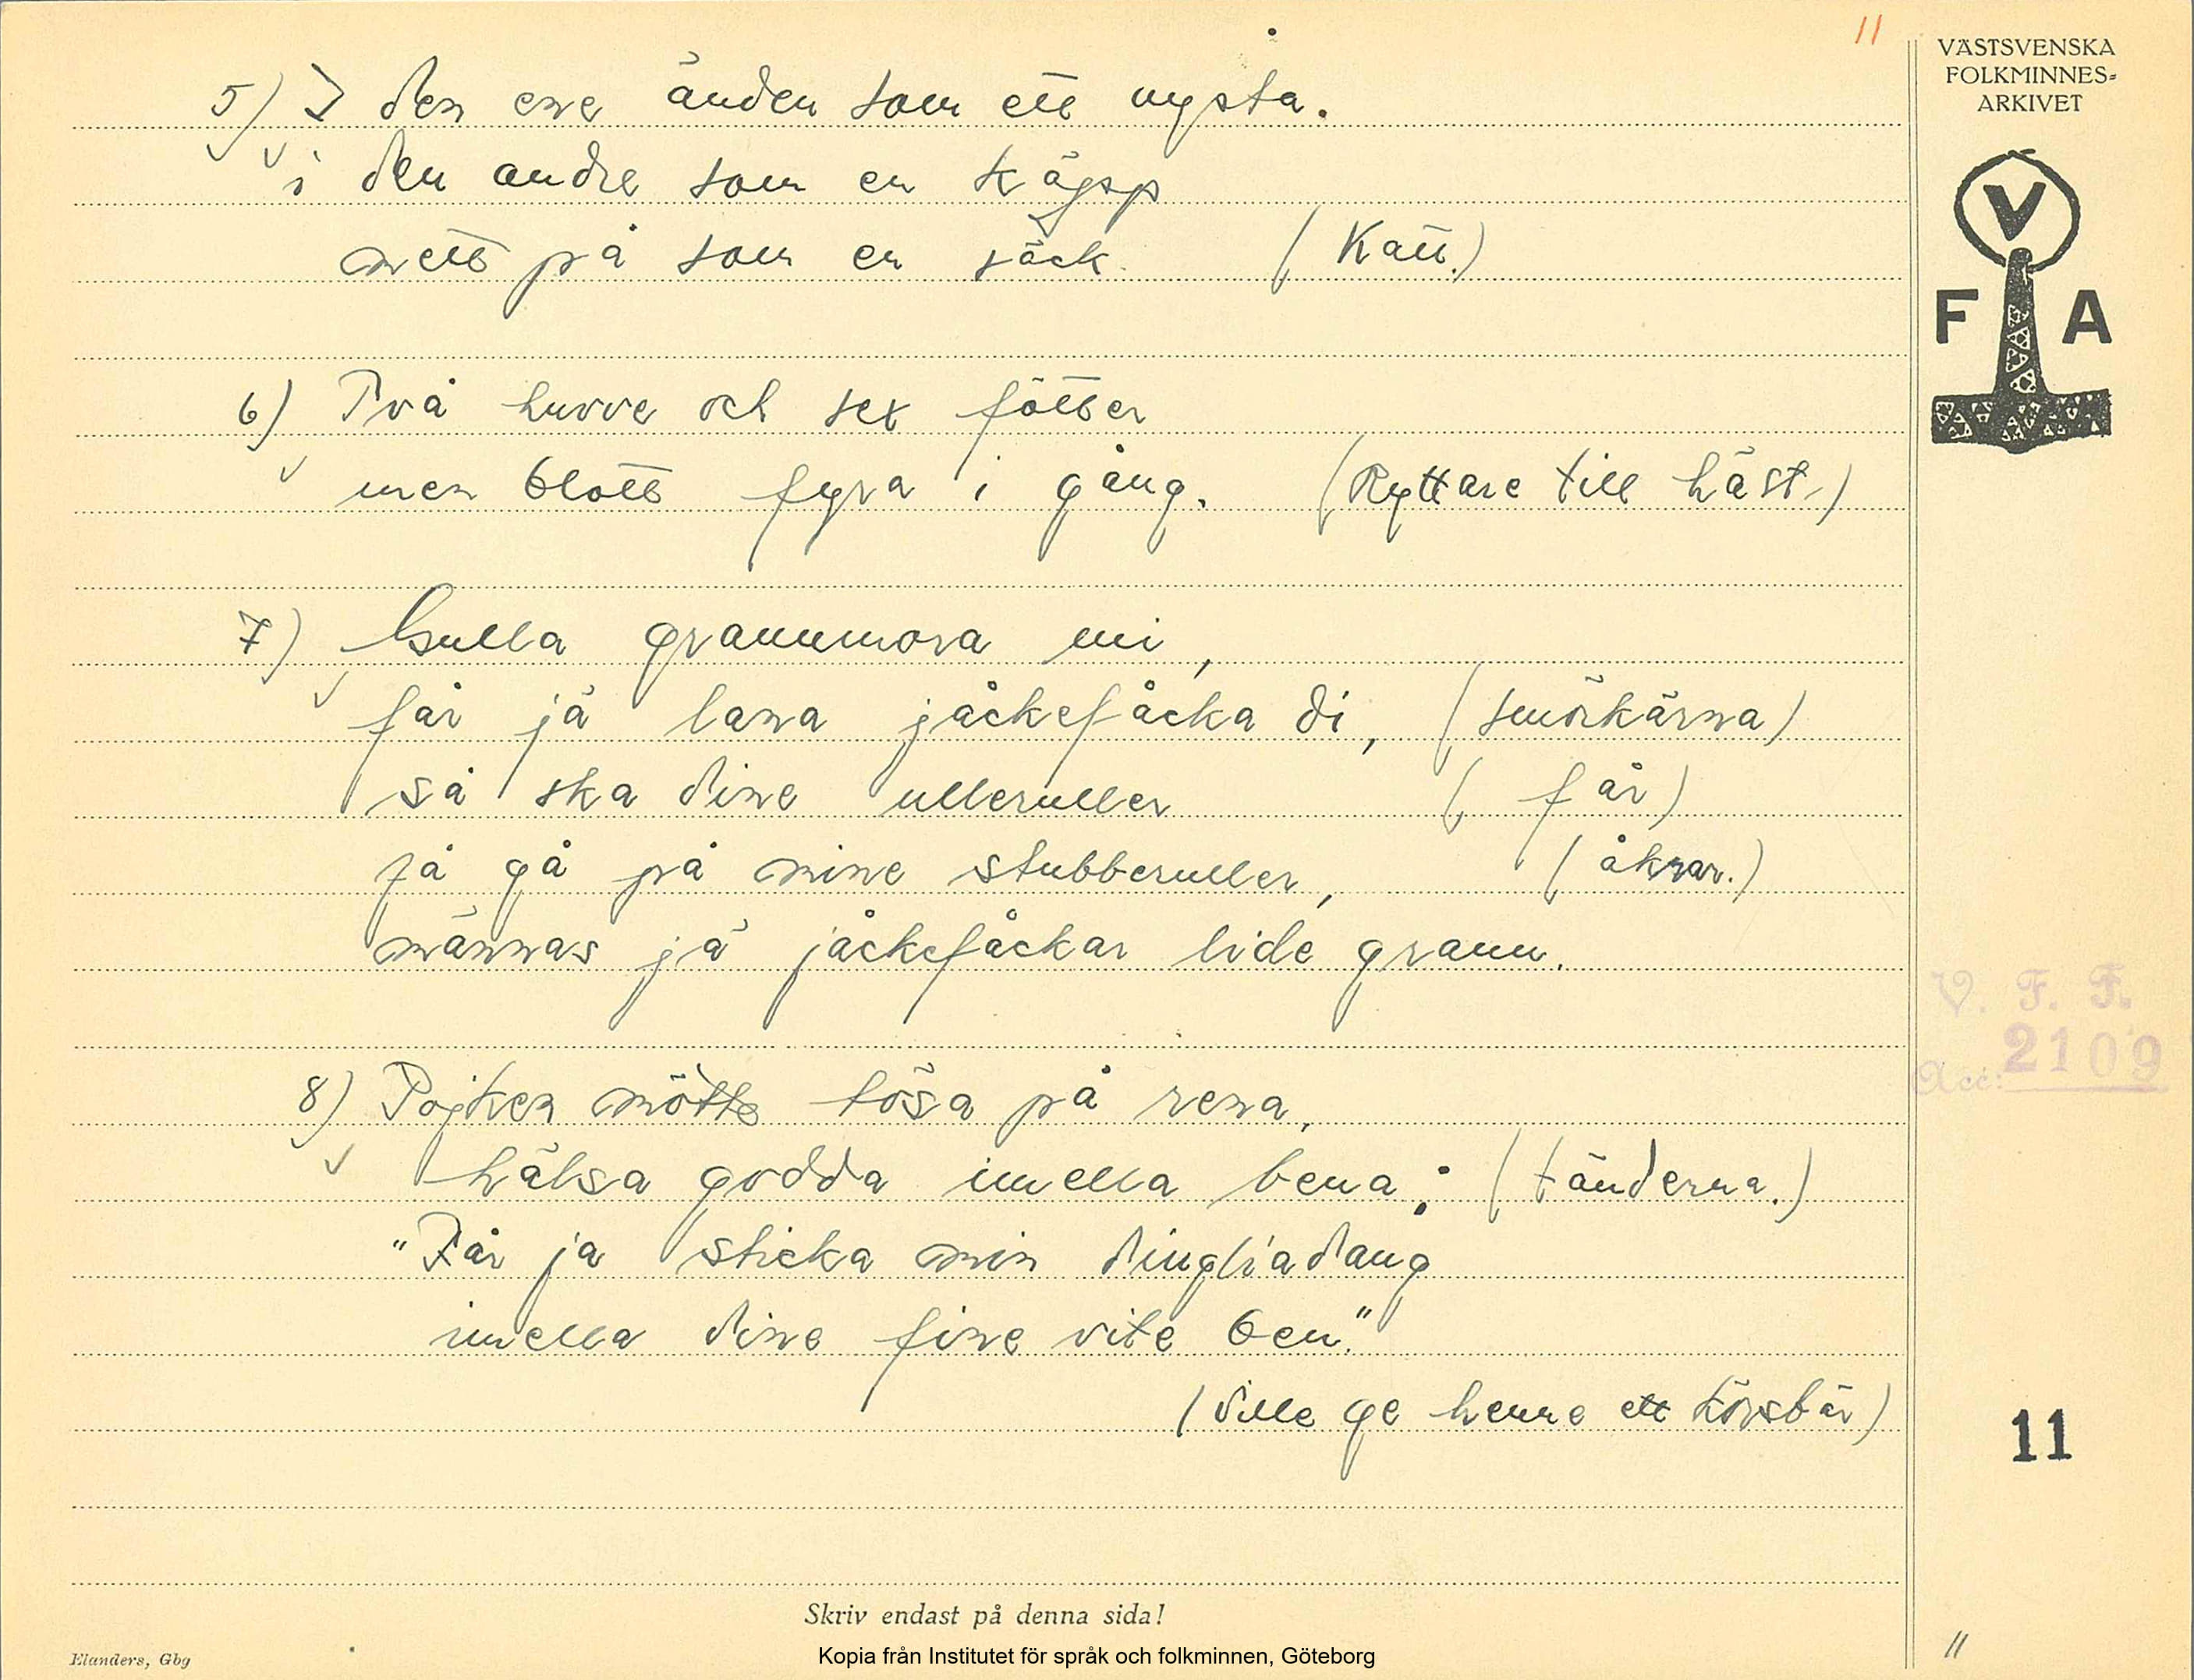 11
VÄSTSVENSKA
FOLKMINNES-
ARKIVET
V
F A
5) I den ene änden som ett nysta.
i den andre som en käpp
mett på som en säck (Katt.)
6) Två huvve och sex fötter
men blott fyra i gång. (Ryttare till häst.)
7) Gulla grannmora mi,
får jä lana jåckefåcka di, (smörkärna)
så ska dine ulleruller (får)
få gå på mine stubberuller, (åkrar.)
männas jä jåckefåckar lide grann.
8) Pojken mötte tösa på rena,
hälsa godda imella bena; (tänderna.)
"Får ja sticka min dingliadang
imella dine fine vite ben."
(Ville ge henne ett körsbär)
V. F. F.
Acc: 2109
11
Skriv endast på denna sida!
Elanders, Gbg
Kopia från Institutet för språk och folkminnen, Göteborg
11